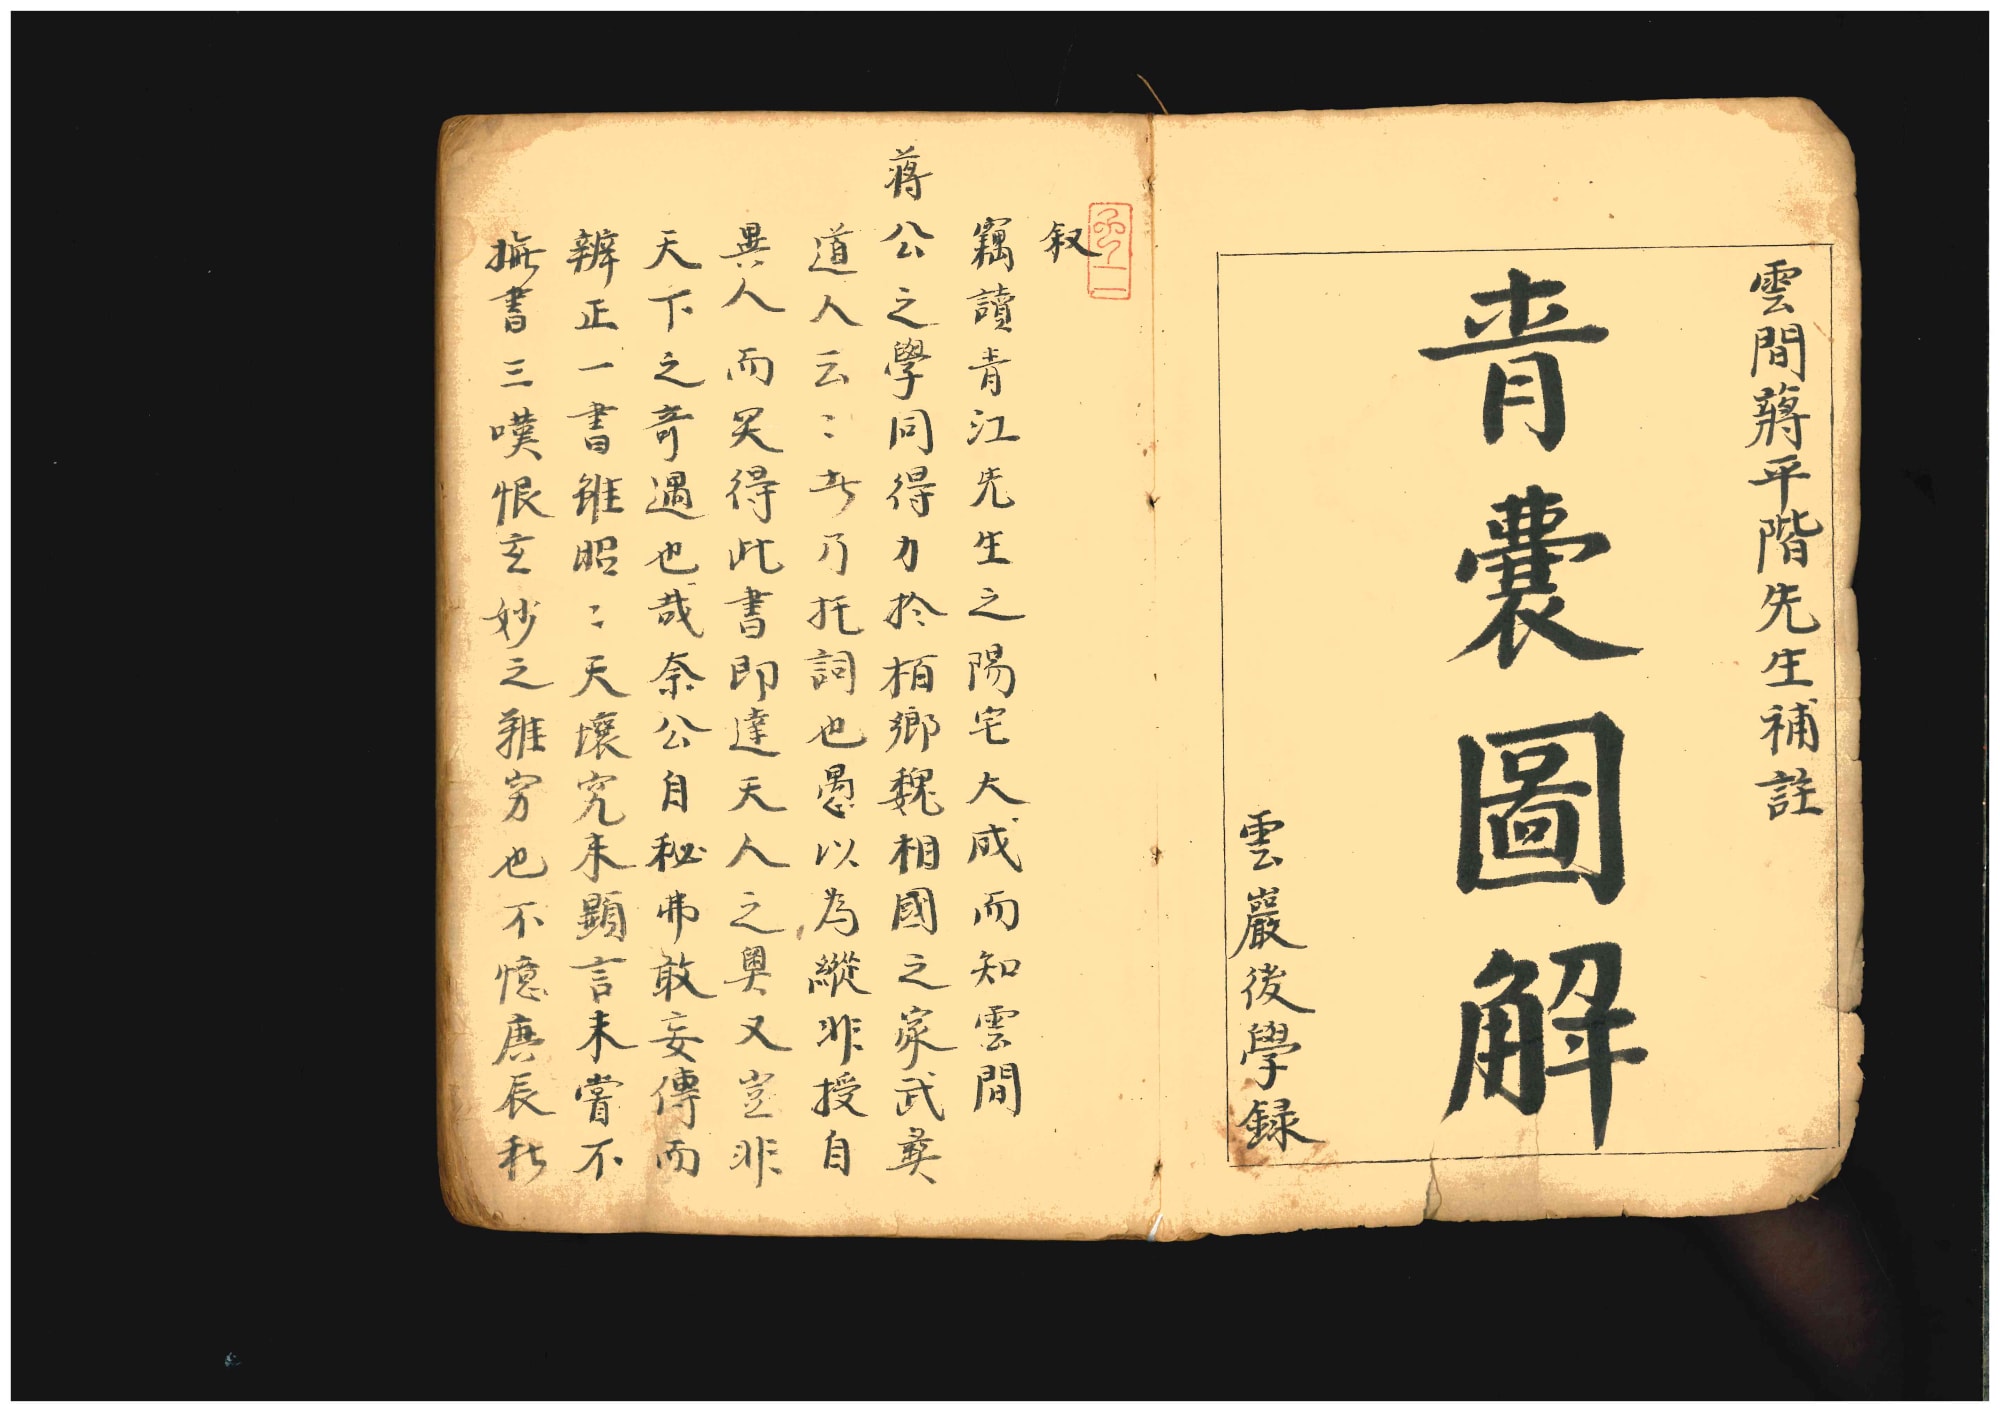 雲間蔣平階先生補註
青囊圖解
雲巖後學録
叙
竊讀青江先生之陽宅大成而知雲間
蔣公之學同得力於栢鄉魏相國之家武彛
道人云〻者乃托詞也愚以為縱非授自
異人而笑得此書即達天人之奥又豈非
天下之奇遇也哉奈公自秘弗敢妄傳而
辨正一書雖昭〻天壤究未顯言未嘗不
撫書三嘆恨玄妙之難窮也不憶庚辰秋